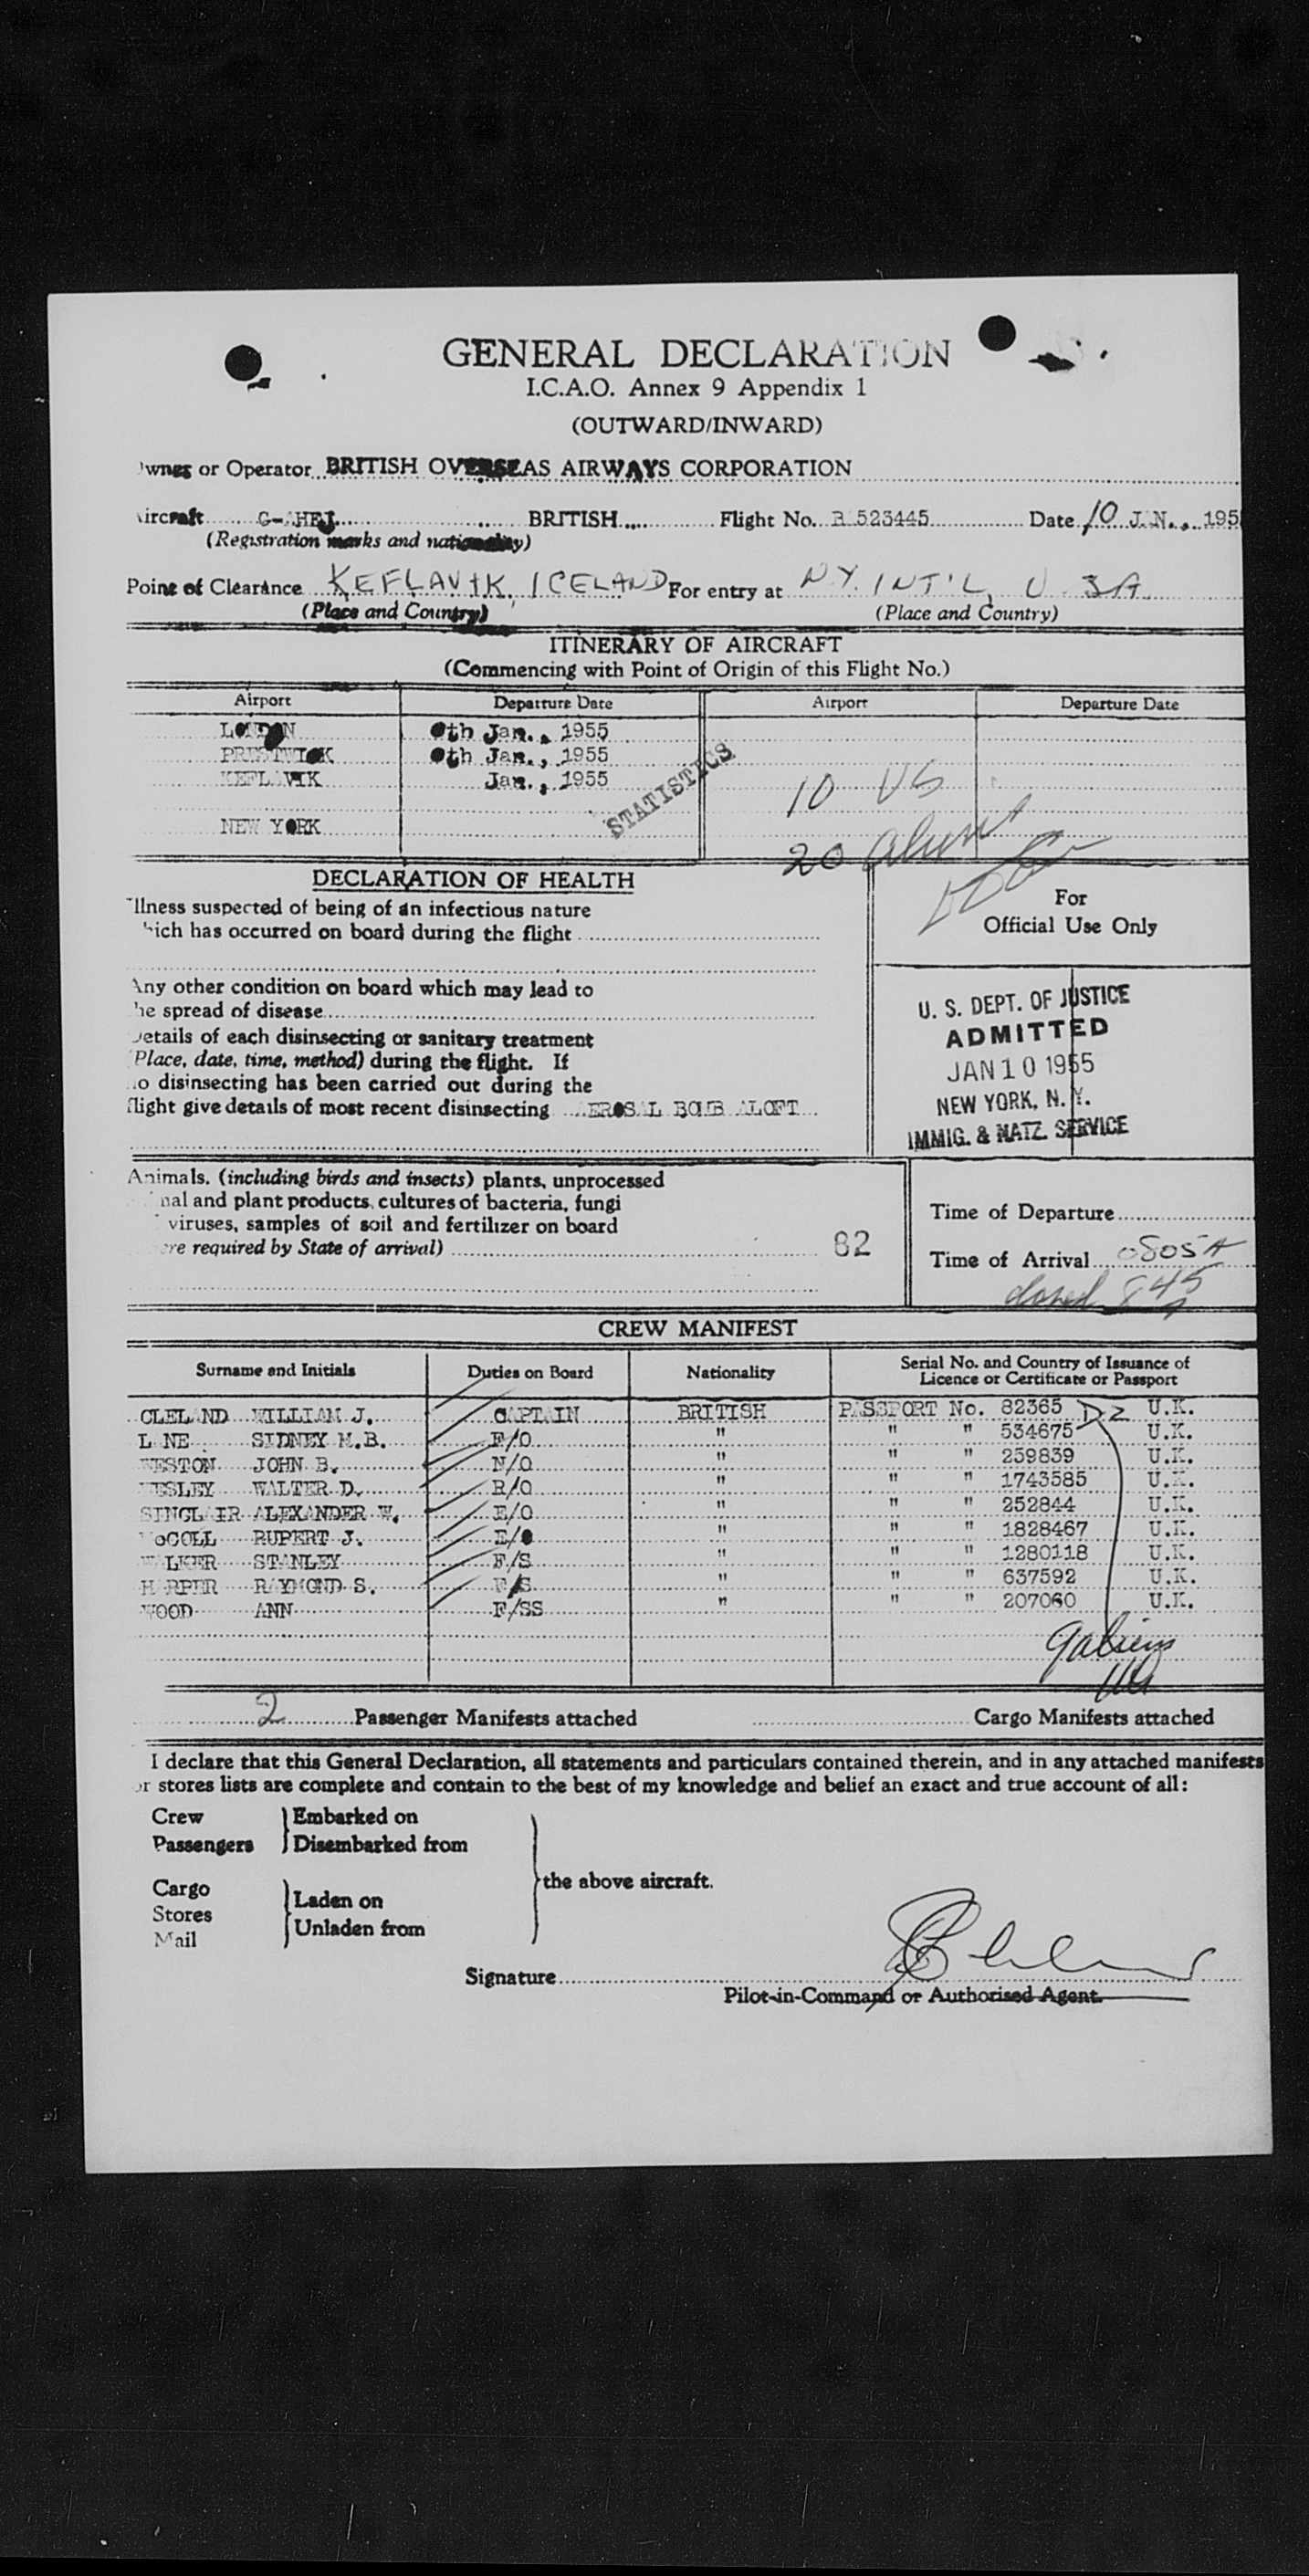 GENERAL DECLARATION
I.C.A.O. Annex 9 Appendix 1
(OUTWARD/INWARD)
Owner or Operator BRITISH OVERSEAS AIRWAYS CORPORATION
Aircraft G-AHEJ BRITISH Flight No. B 523445 Date 10 JAN., 195
(Registration marks and nationality)
Point of Clearance KEFLAVIK, ICELAND For entry at N.Y. INT'L, U.S.A.
(Place and Country) (Place and Country)
ITINERARY OF AIRCRAFT
(Commencing with Point of Origin of this Flight No.)
Airport Departure Date Airport Departure Date
LONDON 9th Jan., 1955
PRESTWICK 9th Jan., 1955
KEFLAVIK Jan., 1955
STATISTICS
10 US
NEW YORK
20 alien
DECLARATION OF HEALTH
Illness suspected of being of an infectious nature
which has occurred on board during the flight
For
Official Use Only
Any other condition on board which may lead to
the spread of disease
Details of each disinsecting or sanitary treatment
(Place, date, time, method) during the flight. If
no disinsecting has been carried out during the
flight give details of most recent disinsecting AEROSAL BOMB ALOFT
U. S. DEPT. OF JUSTICE
ADMITTED
JAN 10 1955
NEW YORK, N.Y.
IMMIG. & NATZ. SERVICE
Animals, (including birds and insects) plants, unprocessed
animal and plant products, cultures of bacteria, fungi
viruses, samples of soil and fertilizer on board
(where required by State of arrival)
82
Time of Departure
Time of Arrival 0805A
closed 845
CREW MANIFEST
Surname and Initials Duties on Board Nationality Serial No. and Country of Issuance of Licence or Certificate or Passport
CLELAND WILLIAM J. CAPTAIN BRITISH PASSPORT No. 82365 D2 U.K.
LANE SIDNEY M.B. F/O " " " 534675 U.K.
WESTON JOHN B. N/O " " " 259839 U.K.
WESLEY WALTER D. R/O " " " 1743585 U.K.
SINCLAIR ALEXANDER W. E/O " " " 252844 U.K.
McCOLL RUPERT J. E/O " " " 1828467 U.K.
WALKER STANLEY F/S " " " 1280118 U.K.
HARPER RAYMOND S. F/S " " " 637592 U.K.
WOOD ANN F/SS " " " 207060 U.K.
2 Passenger Manifests attached Cargo Manifests attached
I declare that this General Declaration, all statements and particulars contained therein, and in any attached manifests
or stores lists are complete and contain to the best of my knowledge and belief an exact and true account of all:
Crew Embarked on
Passengers Disembarked from
the above aircraft.
Cargo
Stores Laden on
Mail Unladen from
Signature
Pilot-in-Command or Authorised Agent.